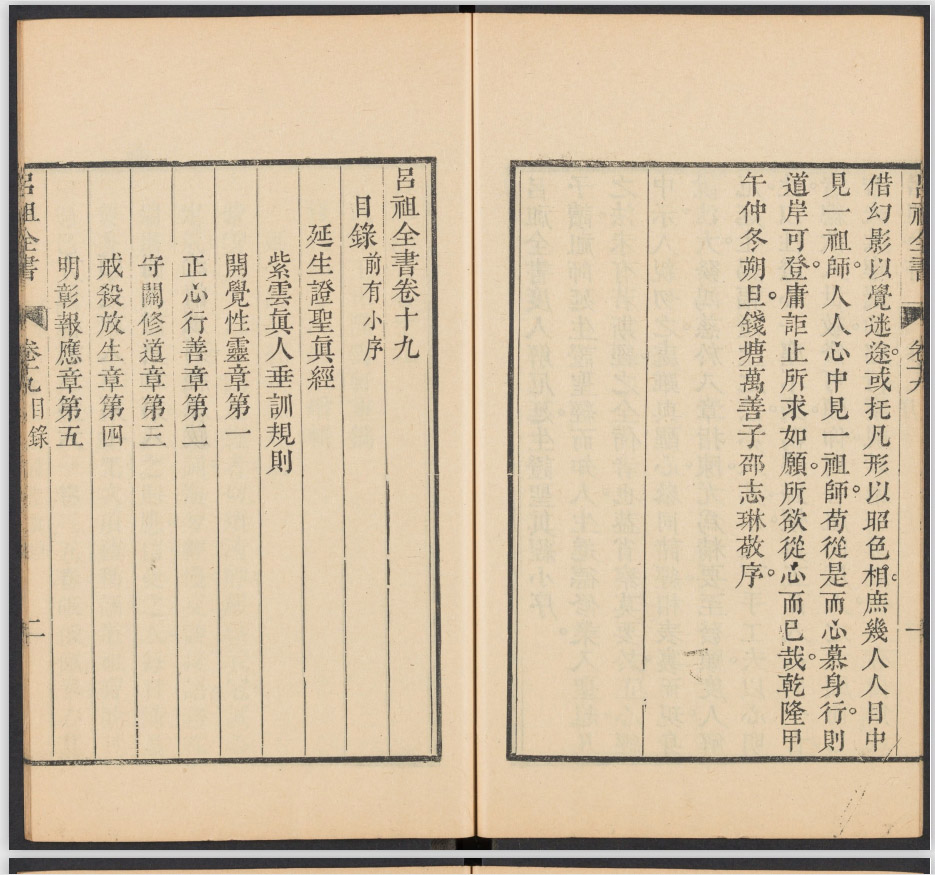 呂祖全書 卷十九 一
借幻影以覺迷途。或托凡形以昭色相。庶幾人人目中
見一祖師。人人心中見一祖師。苟從是而心慕身行。則
道岸可登。庸詎止所求如願。所欲從心而已哉。乾隆甲
午仲冬朔旦。錢塘萬善子邵志琳敬序。
呂祖全書卷十九
目錄 前有小序
延生證聖眞經
紫雲眞人垂訓規則
開覺性靈章第一
正心行善章第二
守關修道章第三
戒殺放生章第四
明彰報應章第五
呂祖全書 卷十九目錄 二